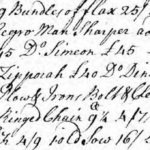 9 Bundles of flax 25/
Negro Man Sharper a
45 Do Simeon £45
Zipporah £40 Do Din
Plow & Irons Bolt & Cle
Ringed Chain 9/4 4
4/9 1 old Sow 16/